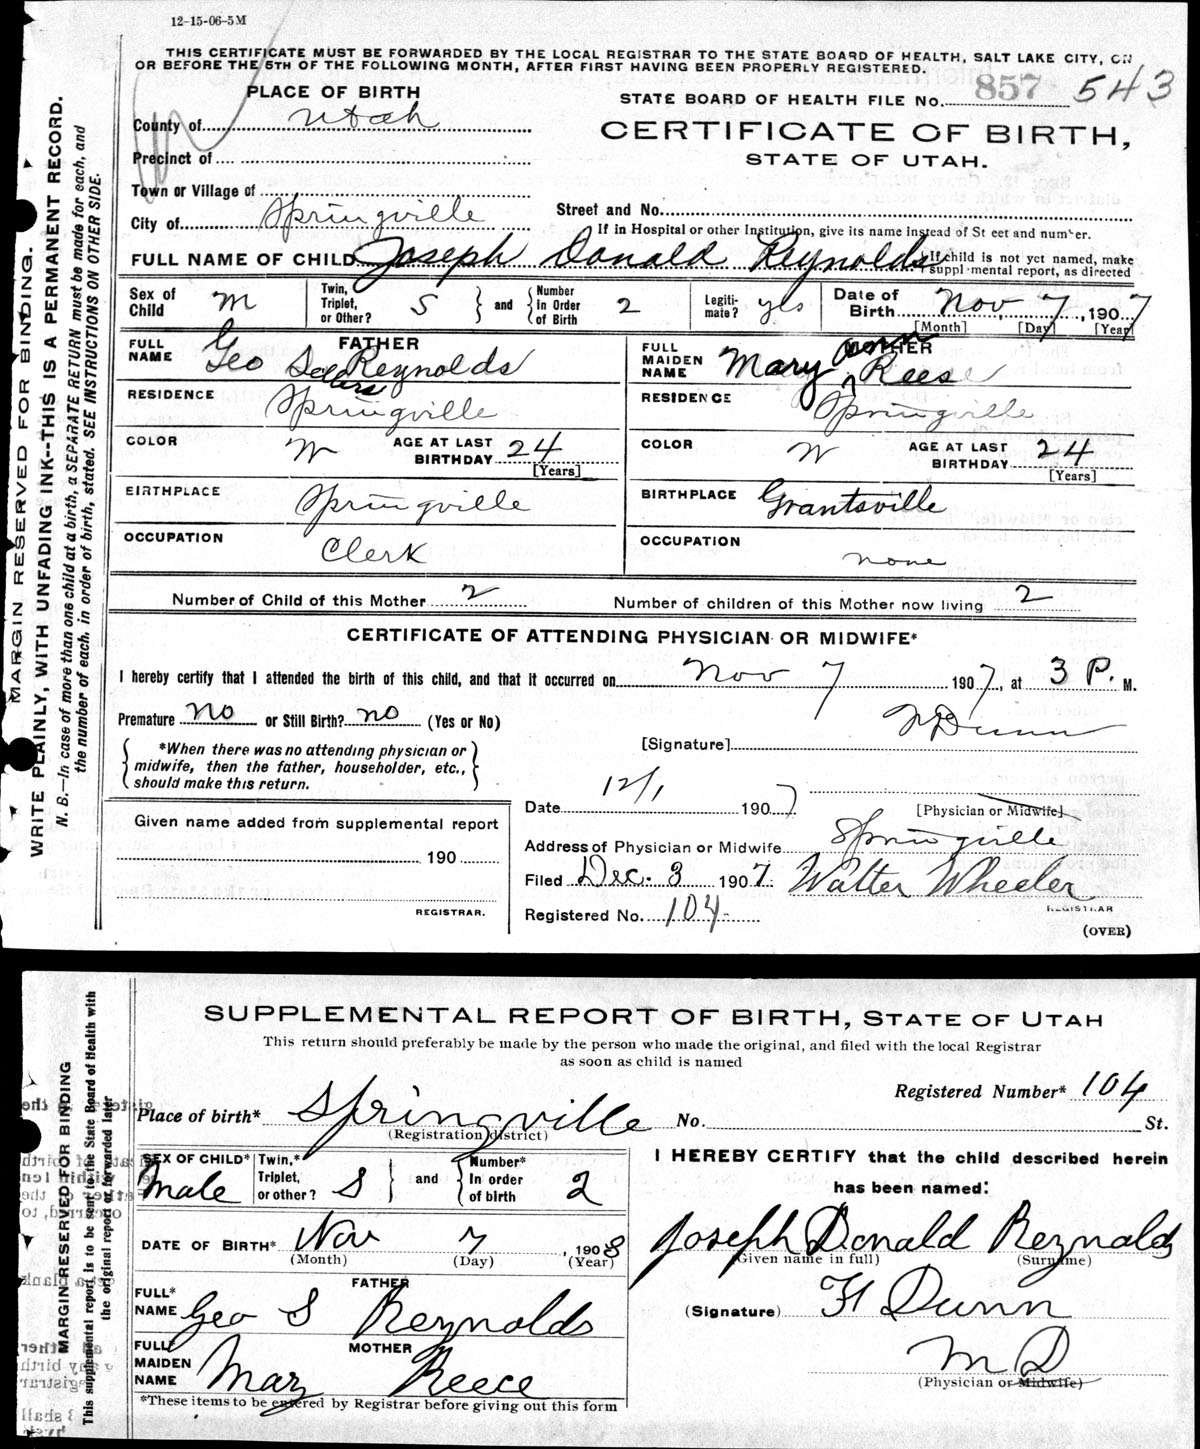 12-15-06-5M
THIS CERTIFICATE MUST BE FORWARDED BY THE LOCAL REGISTRAR TO THE STATE BOARD OF HEALTH, SALT LAKE CITY, ON
OR BEFORE THE 5TH OF THE FOLLOWING MONTH, AFTER FIRST HAVING BEEN PROPERLY REGISTERED.
PLACE OF BIRTH
STATE BOARD OF HEALTH FILE No. 857 543
County of Utah
CERTIFICATE OF BIRTH,
STATE OF UTAH.
Precinct of
Town or Village of
City of Springville
Street and No.
If in Hospital or other Institution, give its name instead of St eet and number.
FULL NAME OF CHILD Joseph Donald Reynolds
If child is not yet named, make suppl·mental report, as directed
Sex of Child M
Twin, Triplet, or Other? S
and
Number in Order of Birth 2
Legiti-mate? yes
Date of Birth Nov 7, 1907
[Month] [Day] [Year]
FATHER
FULL NAME Geo Sellers Reynolds
MOTHER
FULL MAIDEN NAME Mary Ann Reese
RESIDENCE Springville
RESIDENCE Springville
COLOR W AGE AT LAST BIRTHDAY 24 [Years]
COLOR W AGE AT LAST BIRTHDAY 24 [Years]
BIRTHPLACE Springville
BIRTHPLACE Grantsville
OCCUPATION Clerk
OCCUPATION none
Number of Child of this Mother 2
Number of children of this Mother now living 2
CERTIFICATE OF ATTENDING PHYSICIAN OR MIDWIFE*
I hereby certify that I attended the birth of this child, and that it occurred on Nov 7 1907, at 3 P. M.
Premature no or Still Birth? no (Yes or No)
[Signature] Dunn
*When there was no attending physician or
midwife, then the father, householder, etc.,
should make this return.
Date 12/1 1907
[Physician or Midwife]
Given name added from supplemental report
190
REGISTRAR.
Address of Physician or Midwife Springville
Filed Dec. 3 1907. Walter Wheeler
REGISTRAR
Registered No. 104
(OVER)
MARGIN RESERVED FOR BINDING.
WRITE PLAINLY, WITH UNFADING INK--THIS IS A PERMANENT RECORD.
N. B.—In case of more than one child at a birth, a SEPARATE RETURN must be made for each, and
the number of each, in order of birth, stated. SEE INSTRUCTIONS ON OTHER SIDE.
SUPPLEMENTAL REPORT OF BIRTH, STATE OF UTAH
This return should preferably be made by the person who made the original, and filed with the local Registrar
as soon as child is named
Registered Number* 104
Place of birth* Springville No. St.
(Registration district)
SEX OF CHILD* Male
Twin,* Triplet, or other? S
and
Number* In order of birth 2
I HEREBY CERTIFY that the child described herein
has been named:
DATE OF BIRTH* Nov 7, 1908
(Month) (Day) (Year)
Joseph Donald Reynolds
(Given name in full) (Surname)
FATHER
FULL* NAME Geo S Reynolds
(Signature) Dunn
M D
(Physician or Midwife)
MOTHER
FULL* MAIDEN NAME Mary Reece
*These items to be entered by Registrar before giving out this form
MARGIN RESERVED FOR BINDING
This supplemental report is to be sent to the State Board of Health with
the original report or forwarded later